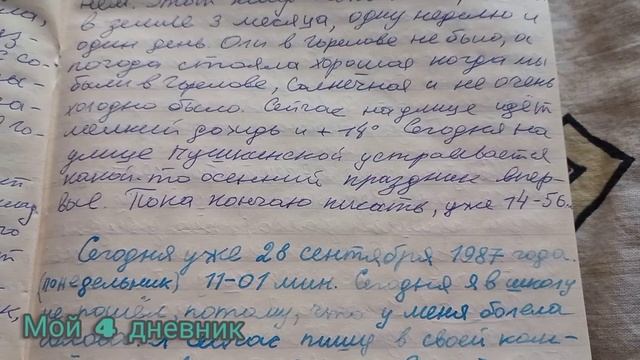 нем. Этот
в земле 3 месяца, одну неделю и
один день. Оли в Горелове не было, а
погода стояла хорошая когда мы
были в Горелове, солнечная и не очень
холодно было. Сейчас на улице идёт
мелкий дождь и +14° Сегодня на
улице Пушкинской устраивается
какой-то осенний праздник впер-
вые. Пока кончаю писать, уже 14-56.
Сегодня уже 28 сентября 1987 года.
(понедельник) 11-01 мин. Сегодня я в школу
не пошёл, потому, что у меня болела
голова. Я сейчас пишу в своей ком-
Мой 4 дневник